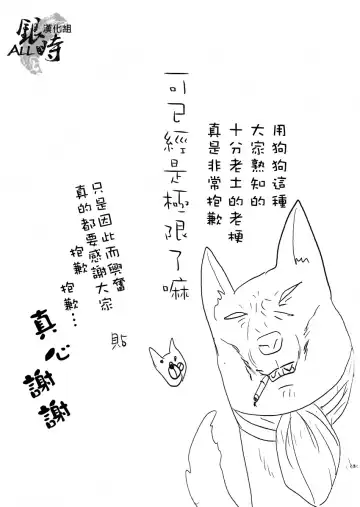 銀時
ALL
漢化組
用狗狗這種
大家熟知的
十分老土的老梗
真是非常抱歉
可已經是極限了嘛
只是因此而興奮
真的都要感謝大家
抱歉 抱歉…
真心謝謝
貼